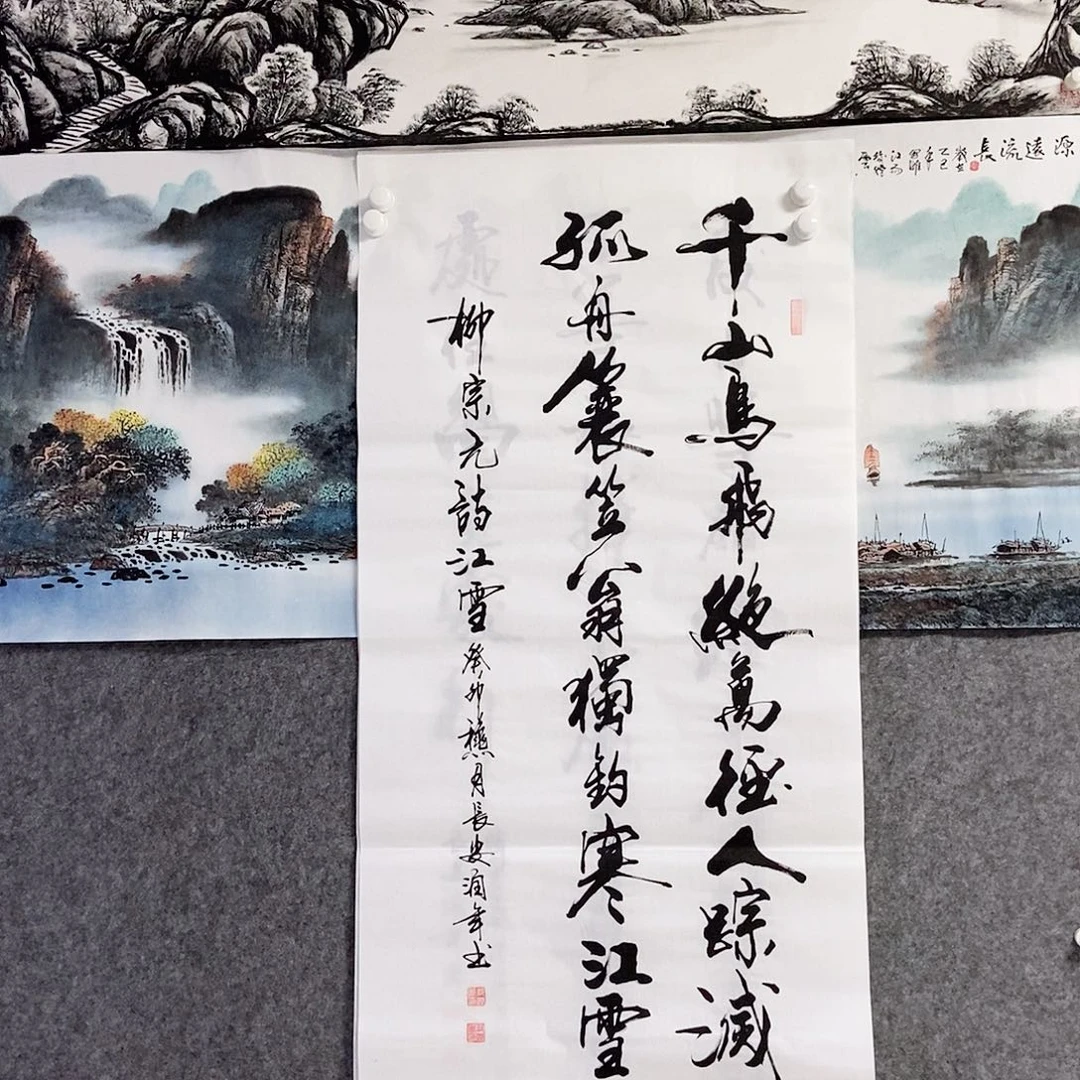 千山鳥飛絕萬徑人踪滅
孤舟簑笠翁獨釣寒江雪
柳宗元詩江雪癸卯蘸月長安潤年书
源遠流長